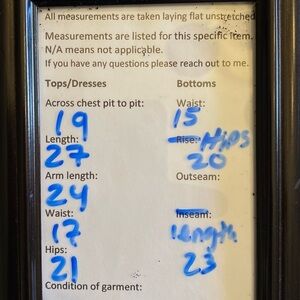 All measurements are taken laying flat unstretched
Measurements are listed for this specific item.
N/A means not applicable.
If you have any questions please reach out to me.
Tops/Dresses Bottoms
Across chest pit to pit: Waist:
19 15
Length: Rise: Hips
27 20
Arm length: Outseam:
24
Waist: Inseam:
17 length
Hips: 23
21
Condition of garment: